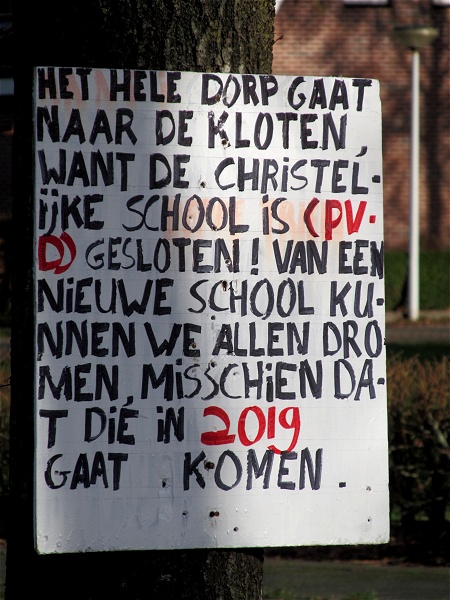 HET HELE DORP GAAT
NAAR DE KLOTEN,
WANT DE CHRISTEL-
IJKE SCHOOL IS (PV-
D) GESLOTEN! VAN EEN
NIEUWE SCHOOL KU-
NNEN WE ALLEN DRO
MEN, MISSCHIEN DA-
T DIE IN 2019
GAAT KOMEN.